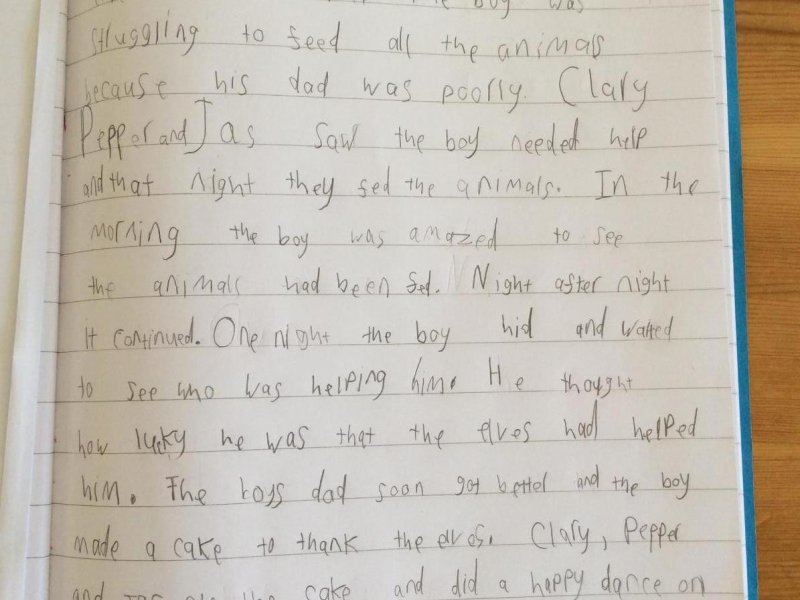 the boy was
struggling to feed all the animals
because his dad was poorly. Clary
Pepper and Jas saw the boy needed help
and that night they fed the animals. In the
morning the boy was amazed to see
the animals had been fed. Night after night
it continued. One night the boy hid and waited
to see who was helping him. He thought
how lucky he was that the elves had helped
him. The boys dad soon got better and the boy
made a cake to thank the elves. Clary, Pepper
and Jas ate the cake and did a happy dance on